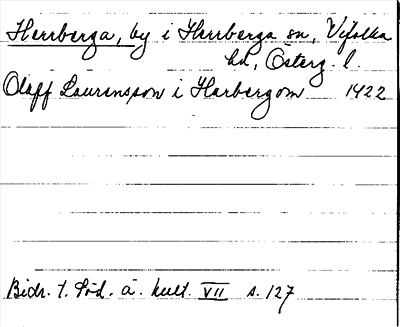 Herrberga, by i Herrberga sn, Vifolka
hd, Österg. l.
Olaff Laurensson i Harbergom 1422
Bidr. t. Söd. ä. kult. VII s. 127